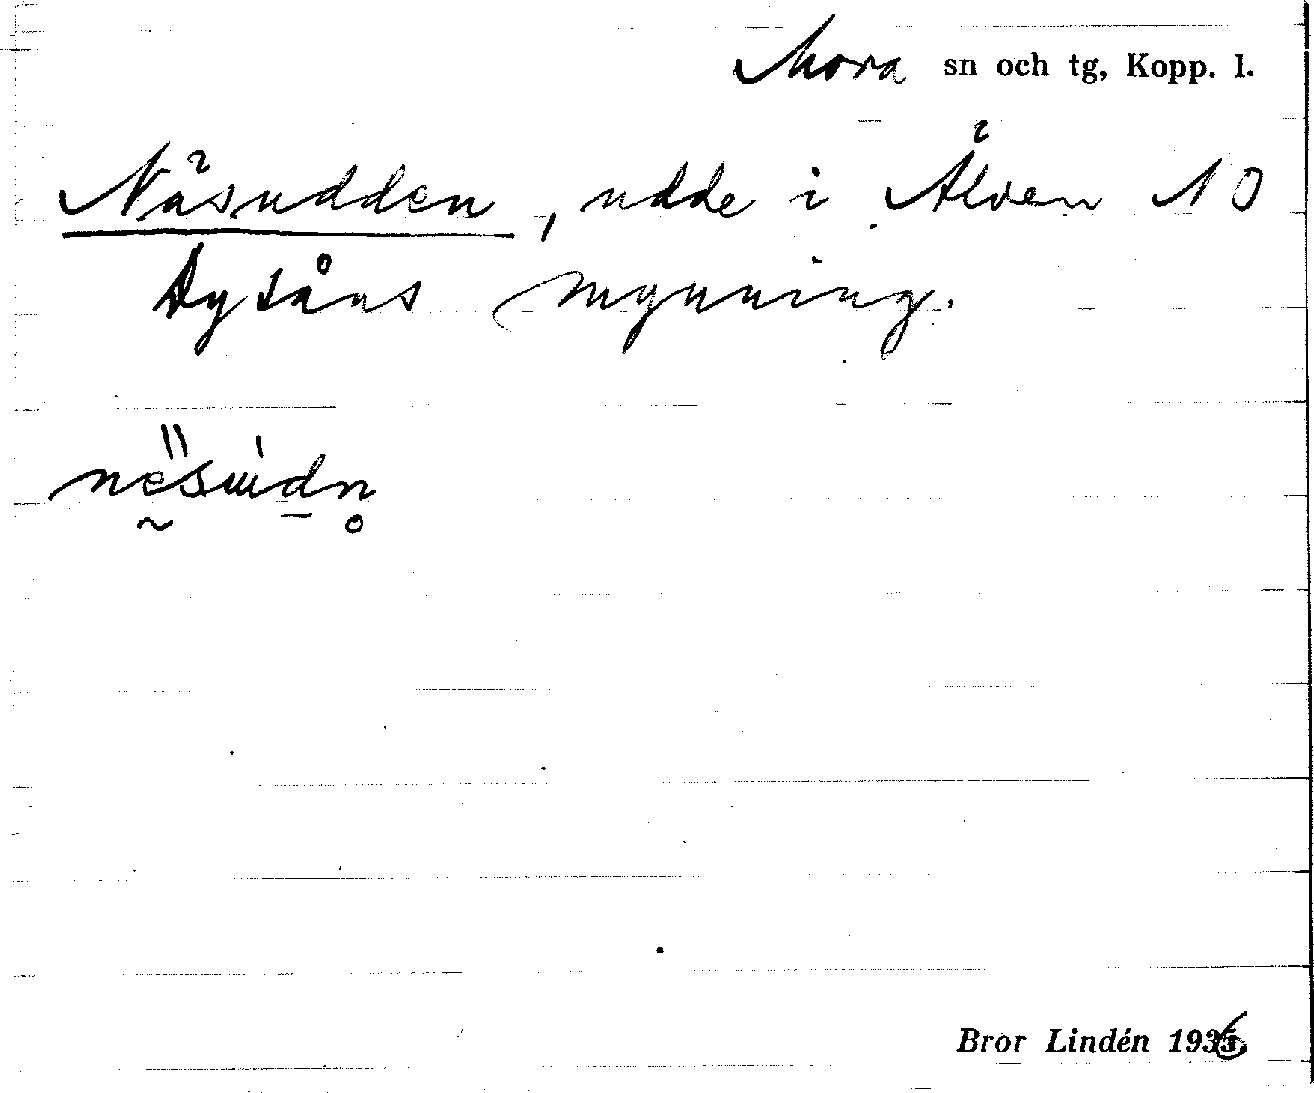 Mora sn och tg, Kopp. l.
Näsudden, udde i Älven NO
Dysåns mynning.
Bror Lindén 1936